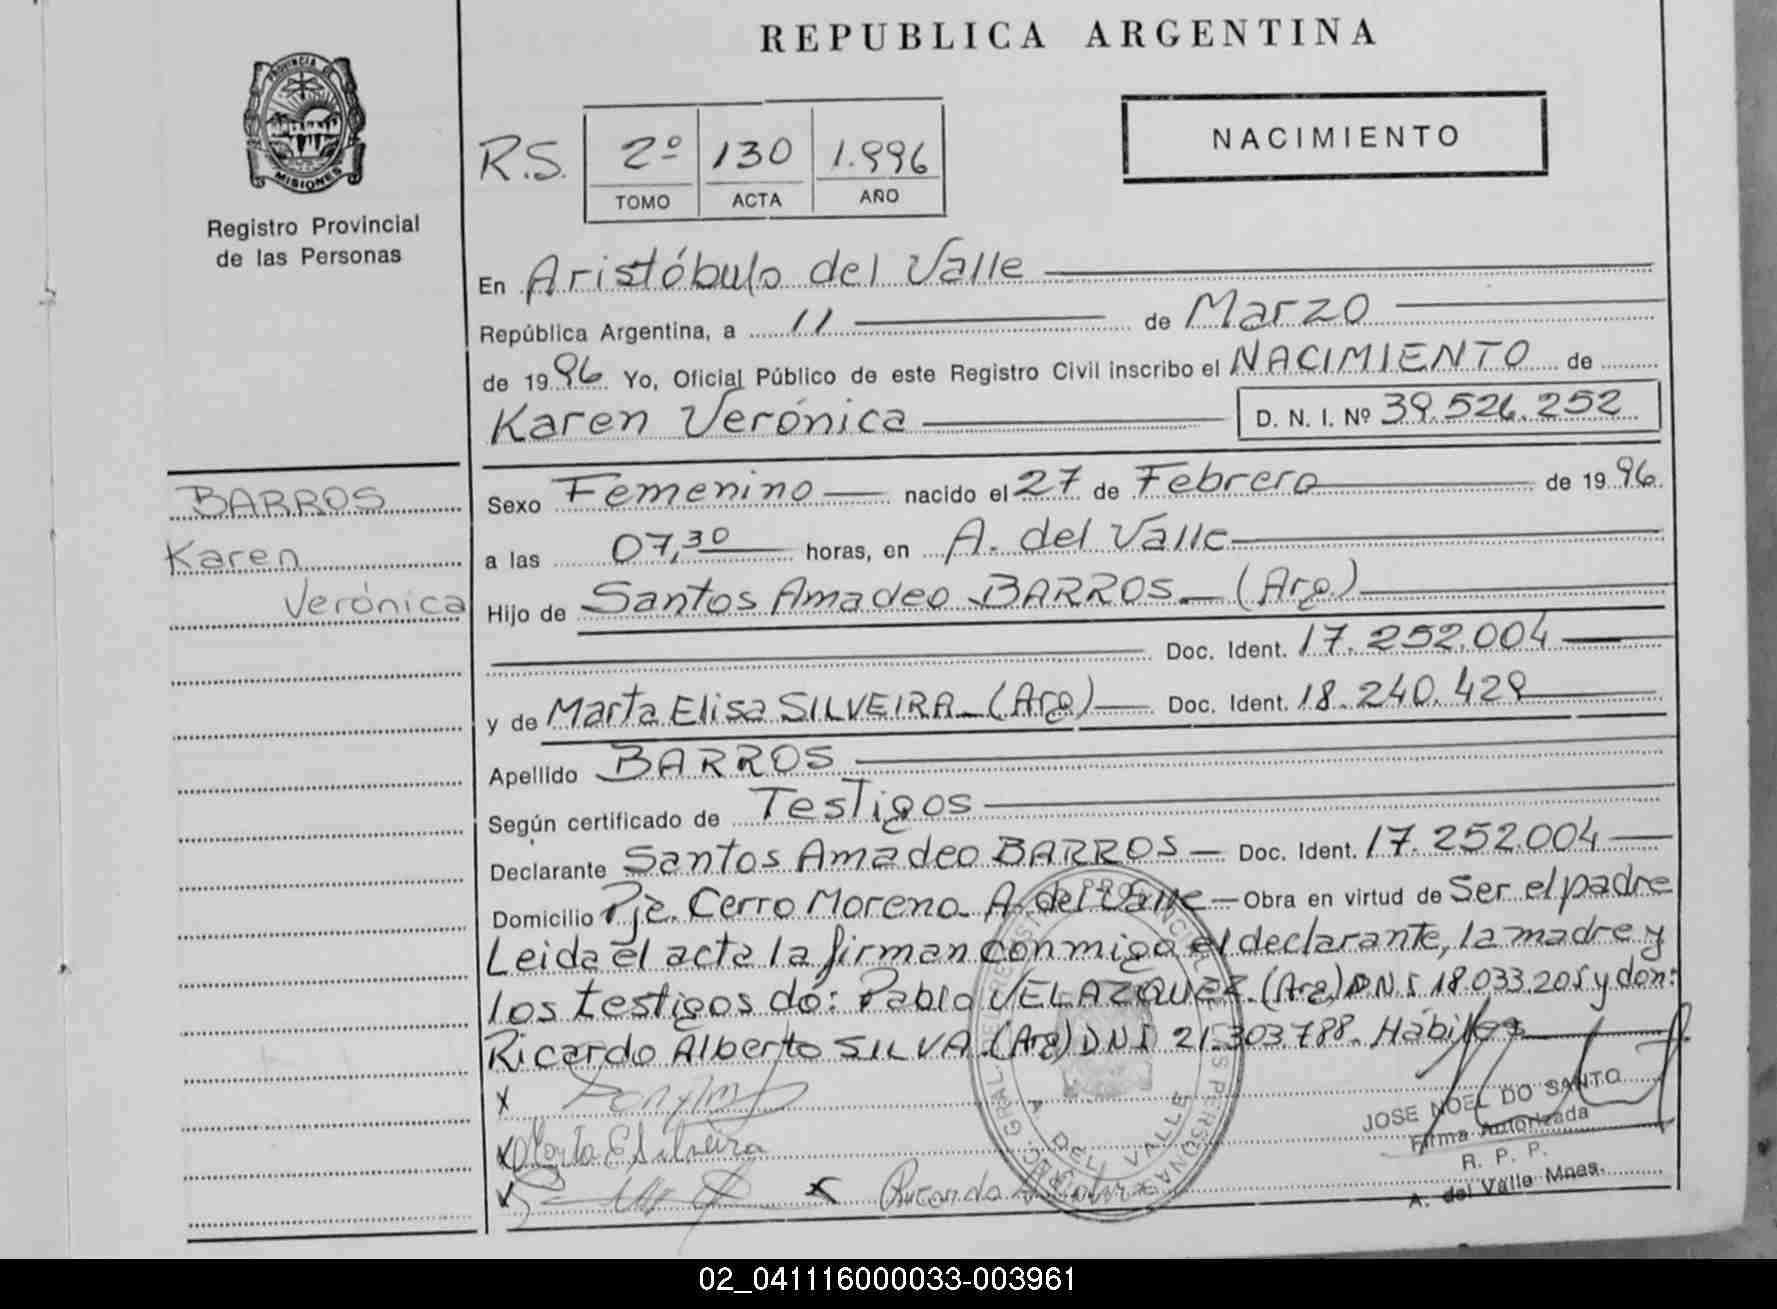 REPUBLICA ARGENTINA
PROVINCIA DE
MISIONES
Registro Provincial
de las Personas
R.S. 2º 130 1.996
TOMO ACTA AÑO
NACIMIENTO
En Aristóbulo del Valle
República Argentina, a 11 de Marzo
de 1996 Yo, Oficial Público de este Registro Civil inscribo el NACIMIENTO de
Karen Verónica D. N. I. Nº 39.526.252
BARROS
Karen
Verónica
Sexo Femenino nacido el 27 de Febrero de 1996.
a las 07,30 horas, en A. del Valle
Hijo de Santos Amadeo BARROS. (Arg)
Doc. Ident. 17.252.004
y de Marta Elisa SILVEIRA. (Arg) Doc. Ident. 18.240.428
Apellido BARROS
Según certificado de Testigos
Declarante Santos Amadeo BARROS Doc. Ident. 17.252.004
Domicilio Pje. Cerro Moreno A. del Valle Obra en virtud de Ser el padre
Leida el acta la firman conmigo el declarante, la madre y
los testigos do: Pablo VELAZQUEZ. (Arg) DNI 18.033.205 y don:
Ricardo Alberto SILVA. (Arg) DNI 21.303.788. Hábiles
x
x Marta E Silveira
x x Ricardo
A. DEL VALLE
JOSE NOEL DO SANTO
Firma Autorizada
R. P. P.
A. del Valle Mnes.
02_041116000033-003961